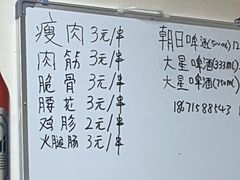 瘦肉 3元/串
肉筋 3元/串
脆骨 3元/串
腰花 3元/串
鸡胗 2元/串
火腿肠 3元/串
朝日啤酒(500ml) 12
大星啤酒(333ml)
大星啤酒(750ml)
18671588543